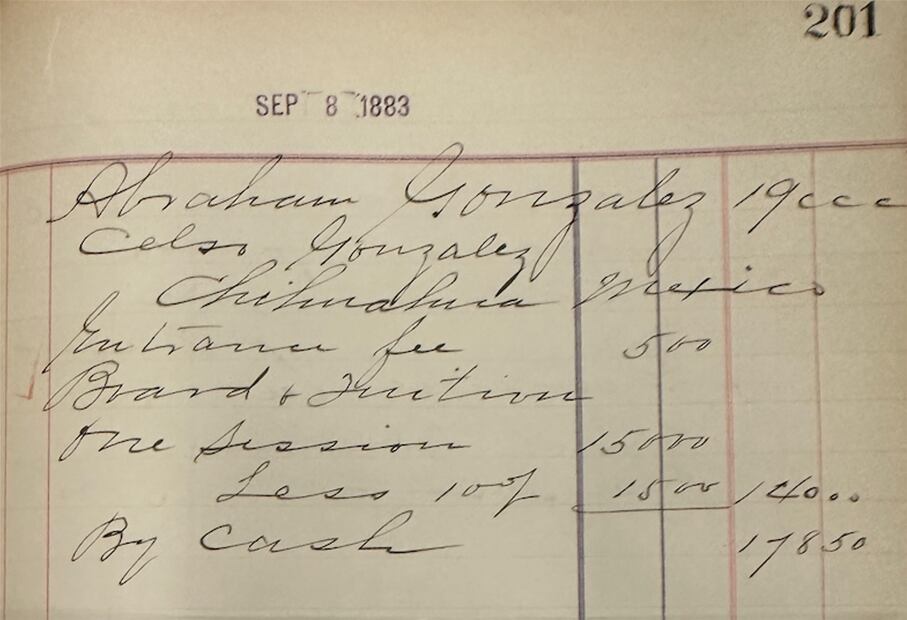 201
SEP 8 1883
Abraham Gonzalez 19ccc
Celso Gonzalez
Chihuahua Mexico
Entrance fee 500
Board & Tuition
One Session 15000
Less 10% 1500 140..
By Cash 17850